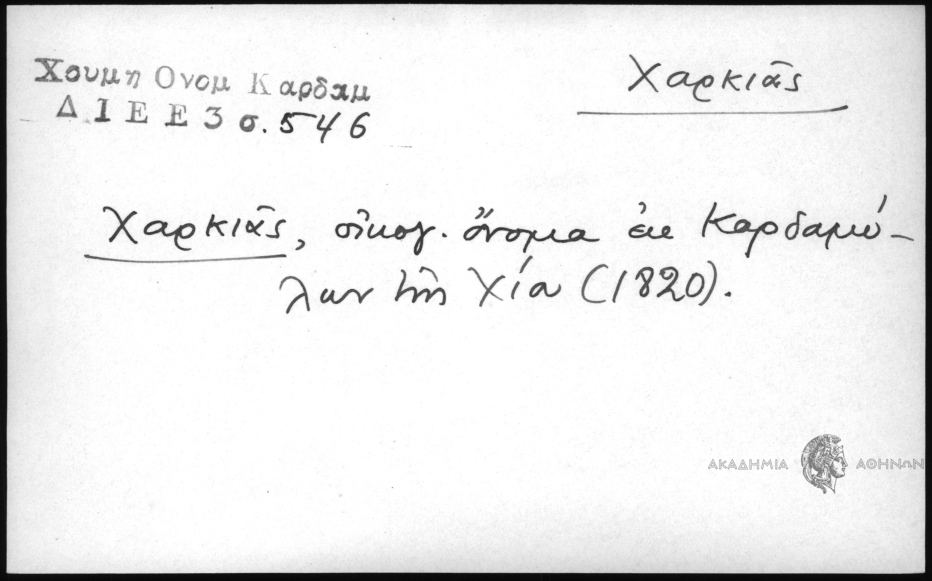 Χουμη Ονομ Καρδαμ
Δ Ι Ε Ε 3 σ. 546
Χαρκιᾶς
Χαρκιᾶς, οἰκογ. ὄνομα ἐκ Καρδαμύ-
λων τῆς Χίου (1820).
ΑΚΑΔΗΜΙΑ ΑΘΗΝΩΝ